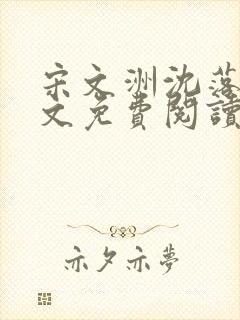 宋文洲沈落
文免費閱讀
亦夕亦夢